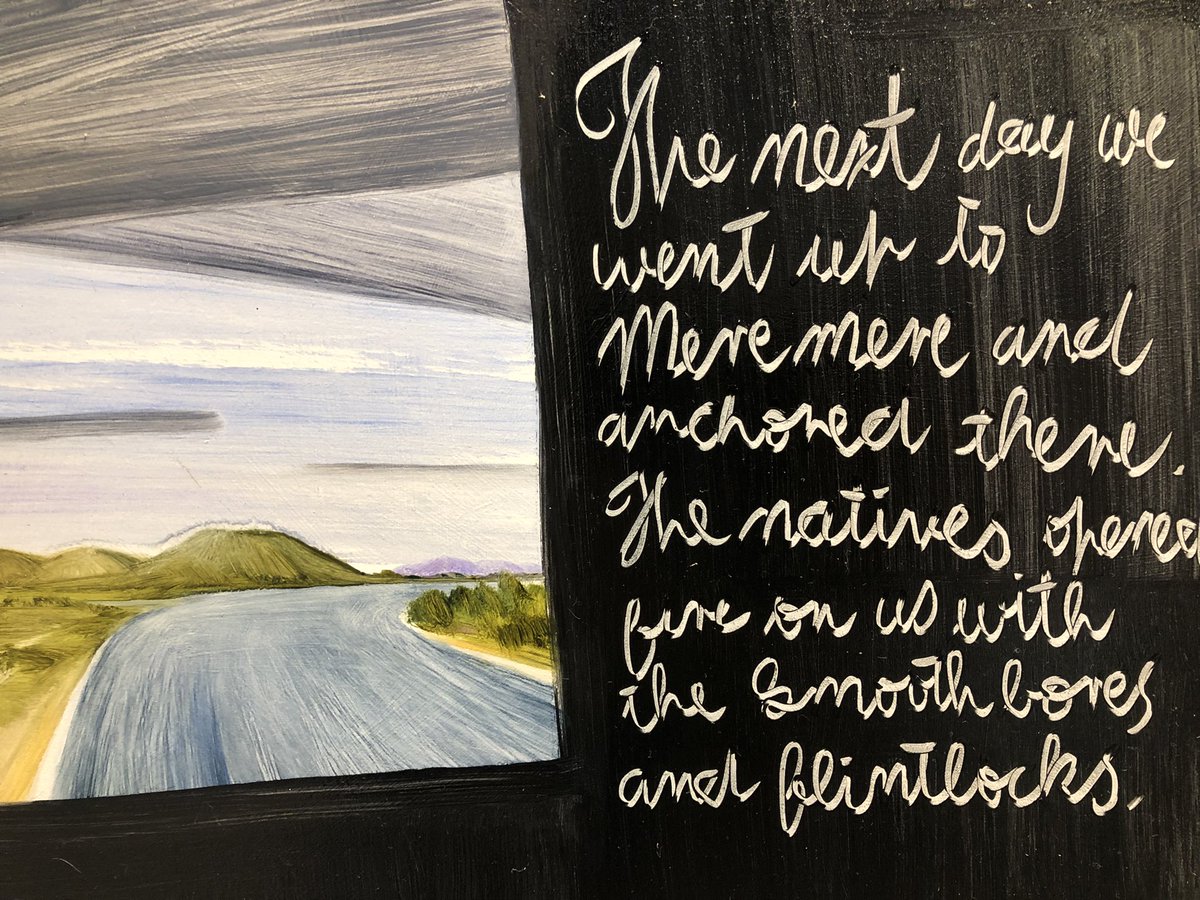 The next day we
went up to
Meremere and
anchored there.
The natives opened
fire on us with
the smooth bores
and flintlocks.